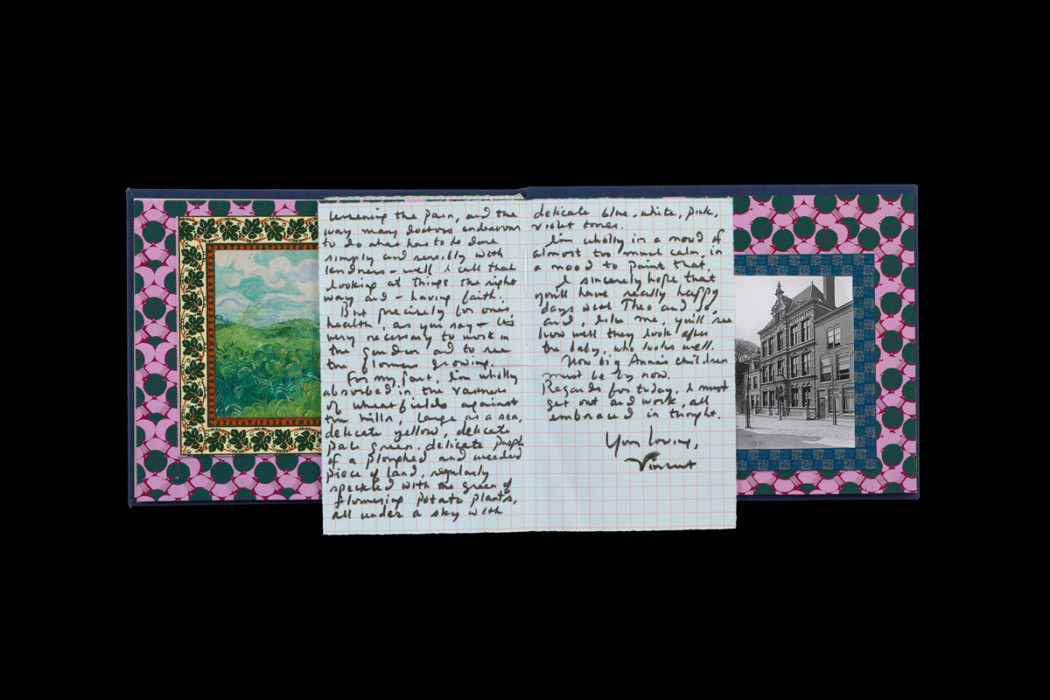 lessening the pain, and the
way many doctors endeavour
to do what has to be done
simply and sensibly with
kindness – well I call that
looking at things the right
way and – having faith.
But precisely for one's
health, as you say – it's
very necessary to work in
the garden and to see
the flowers growing.
For my part, I'm wholly
absorbed in the vastness
of wheatfields against
the hills, large as a sea,
delicate yellow, delicate
pale green, delicate purple
of a ploughed and weeded
piece of land, regularly
speckled with the green of
flowering potato plants,
all under a sky with
delicate blue, white, pink,
violet tones.
I'm wholly in a mood of
almost too much calm, in
a mood to paint that.
I sincerely hope that
you'll have really happy
days with Theo and Jo,
and, like me, you'll see
how well they look after
the baby, who looks well.
How big Anna's children
must be by now.
Regards for today, I must
get out and work, all
embraced in thought.
Your loving,
Vincent